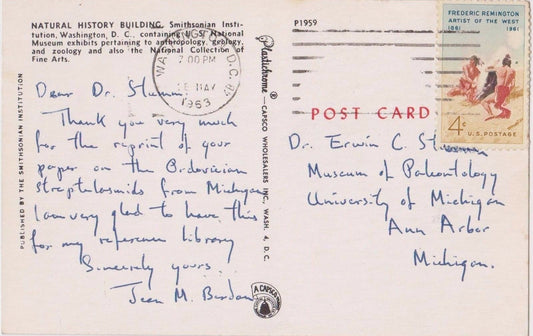 NATURAL HISTORY BUILDING, Smithsonian Insti-
tution, Washington, D. C., containing U.S. National
Museum exhibits pertaining to anthropology, geology,
and zoology and also the National Collection of
Fine Arts.
P1959
WASHINGTON D.C.
7:00 PM
MAY
1963
FREDERIC REMINGTON
ARTIST OF THE WEST
1861 1961
4c U.S. POSTAGE
POST CARD
PUBLISHED BY THE SMITHSONIAN INSTITUTION
Plastichrome® — CAPSCO WHOLESALERS INC., WASH. 4, D. C.
Dear Dr. Stumm:
Thank you very much
for the reprint of your
paper on the Ordovician
streptelasmids from Michigan
I am very glad to have this
for my reference library
Sincerely yours
Jean M. Berdan
Dr. Erwin C. Stumm
Museum of Paleontology
University of Michigan
Ann Arbor
Michigan.
A CAPSCO